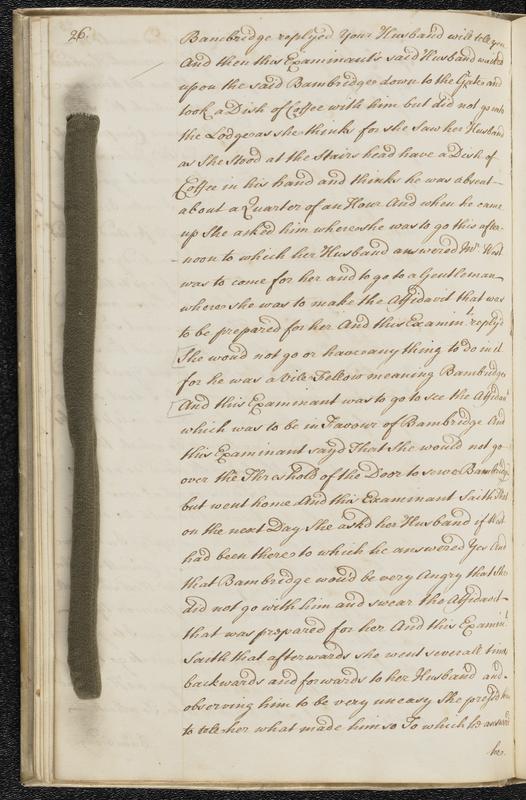 26.
Bambridge replyed Your Husband will tell you
And then this Examinants said Husband waited
upon the said Bambridge down to the Gate and
took a Dish of Coffee with him but did not go into
the Lodge as she thinks for she saw her Husband
as she stood at the Stairs head have a Dish of
Coffee in his hand and thinks he was absent
about a Quarter of an Hour And when he came
up She asked him where she was to go this after-
noon to which her Husband answered Mr. West
was to come for her and to go to a Gentleman
where she was to make the Affidavit that was
to be prepared for her And this Examint. reply'd
She woud not go or have any thing to do in it
for he was a Vile Fellow meaning Bambridge
And this Examinant was to go to see the Affidavt
which was to be in Favour of Bambridge And
this Examinant sayd That She would not go
over the Threshold of the Door to serve Bambridge
but went home And this Examinant Saith that
on the next Day She askd her Husband if that
had been there to which he answered Yes And
that Bambridge wou'd be very Angry that she
did not go with him and swear the Affidavit
that was prepared for her And this Examint.
Saith that afterwards she went severall times
backwards and forwards to her Husband and
observing him to be very uneasy She press'd him
to tell her what made him so To which he answerd
he